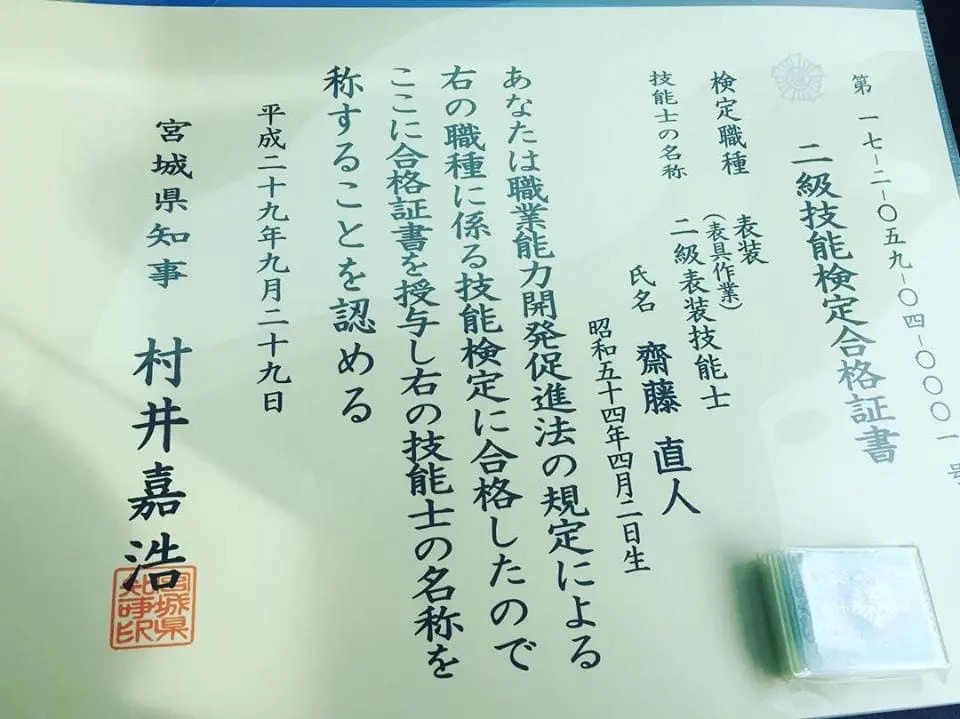 第一七-二-〇五九-〇四-〇〇〇一号
二級技能検定合格証書
検定職種 表装
(表具作業)
技能士の名称 二級表装技能士
氏名 齋藤 直人
昭和五十四年四月二日生
あなたは職業能力開発促進法の規定による
右の職種に係る技能検定に合格したので
ここに合格証書を授与し右の技能士の名称を
称することを認める
平成二十九年九月二十九日
宮城県知事 村井嘉浩
宮城県
知事印